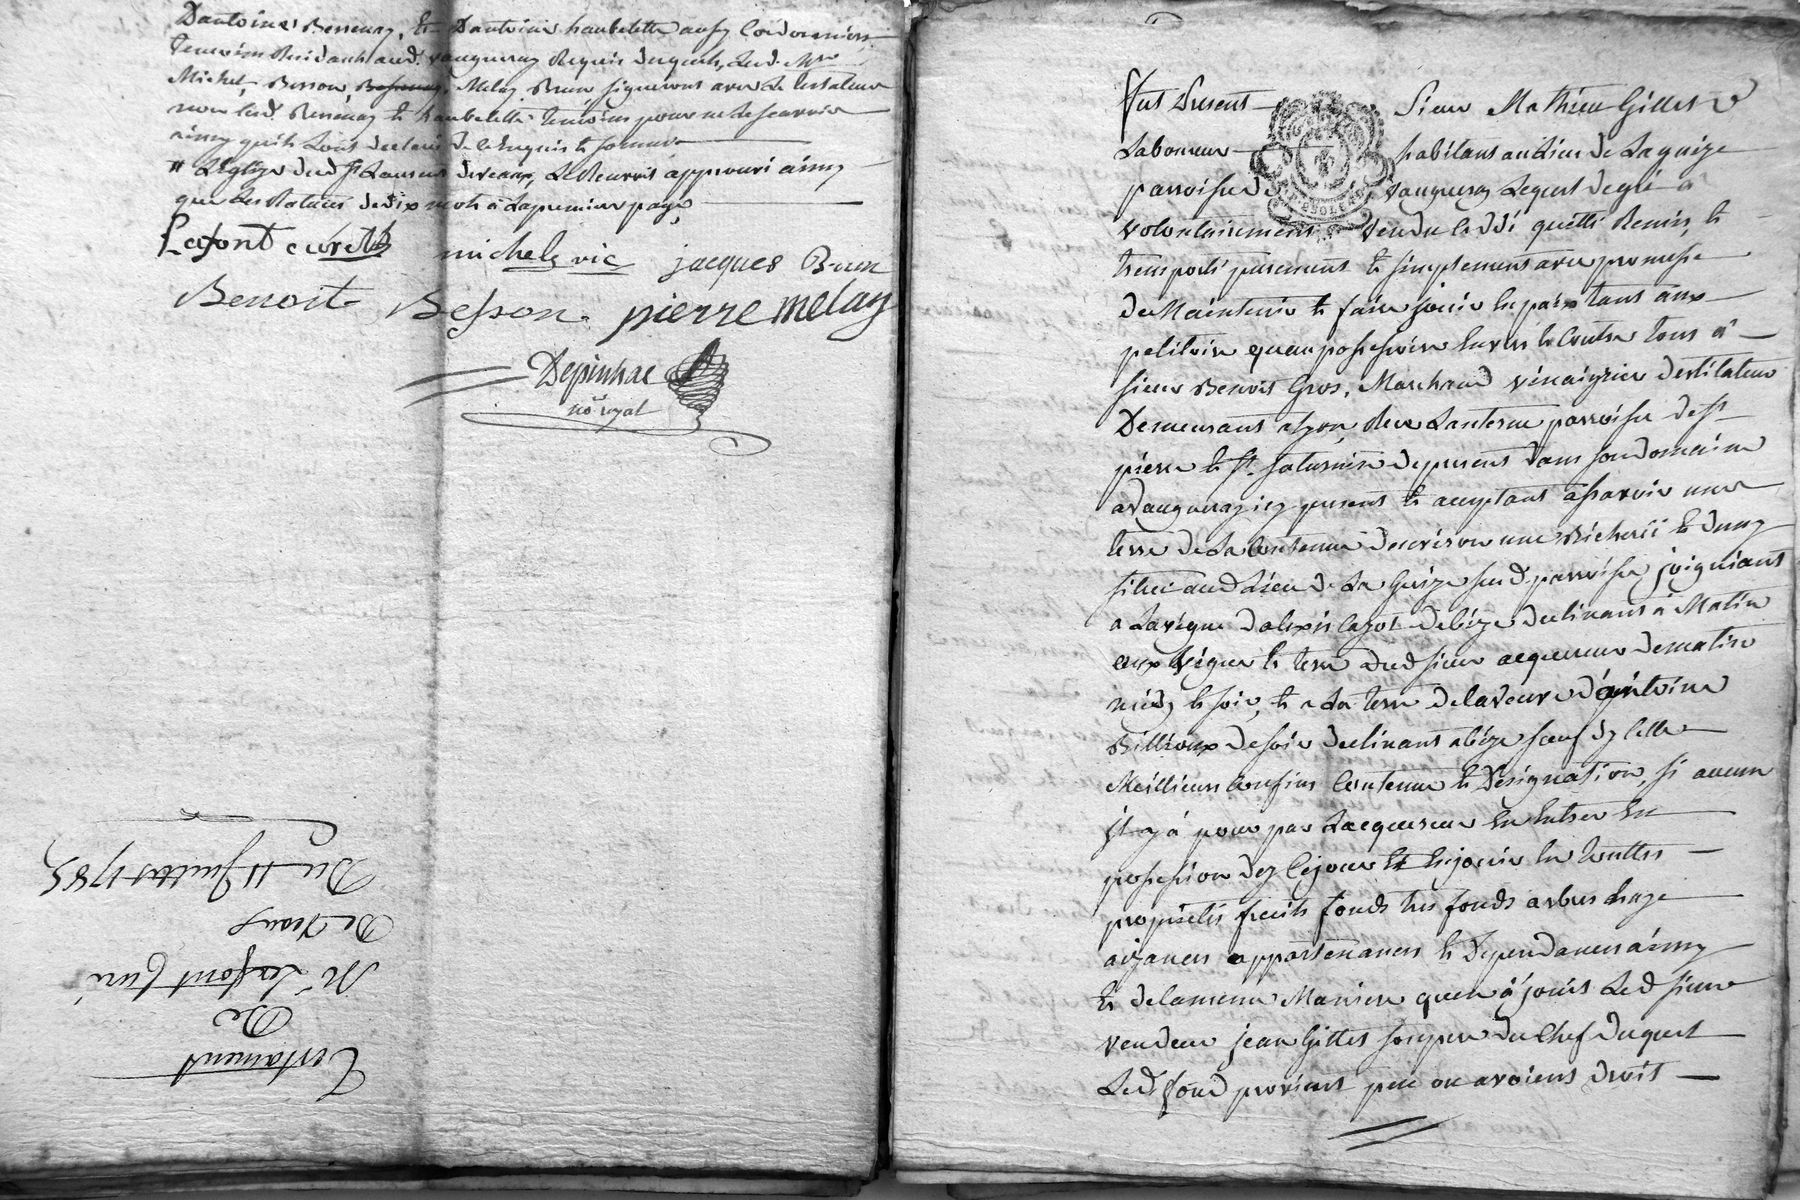 D'antoine Bessenay, & D'antoine haubelette aussy Cordonniers
temoins Residants aud. vaugneray Requis duquels, Led. Mre
Michel, Besson, Bessenay, Melay Brun signeront avec Le testateur
non lesd. Bessenay & haubelette temoins pour ne le sçavoir
ainsy quils L'ont declaré De ce Enquis & sommés
" L'eglise dud St Laurent de vaux, Le Renvois approuvé ainsy
que Les Ratures de dix mots à La premiere page
Lafont curé
michel vic
jacques Brun
Benoit Besson
pierre melay
Depinhac
nore royal
Testament
De
Mr Lafont Curé
De Vaux
Du 11 Juillet 1785
fut Present Sieur Mathieu Gillet
Laboureur habitant au Lieu de La guize
parroisse de vaugneray Lequel de gré à
volontairement vendu cedé quitté Remis, &
transporté purement & simplement avec promesse
de Maintenir & faire jouir En paix tant aux
petitoire qu'au possessoire Envers & Contre tous à
sieur Benoit Gros, Marchand vinaigrier destilateur
Demeurant a lyon, Rue Lanterne parroisse de St
pierre & St. saturnin de present dans son domaine
a Vaugneray icy present & acceptant assavoir une
terre De La Contenue d'environ une Bicherée & demy
située aud Lieu de La Guize sud. parroisse joignant
a La vigne d'alexis de bize declinant à Matin
aux vigne & terre dud sieur acquereur de matin
midy & soir, & a La terre de la veuve d'antoine
Billioux de soir declinant a bize sauf dy celle
Meillieurs Confins Contenue & Designation, si aucun
il y à pour par Lacquereur En Entrer En
possession dez Cejour & En jouir En touttes
proprietés fruits fonds tres fonds arbres
aizances appartenances & Dependances ainsy
& de la meme Maniere quen à jouis Led sieur
vendeur jean Gillet son pere du Chef duquel
Led. fond provient peu ou avoient droit